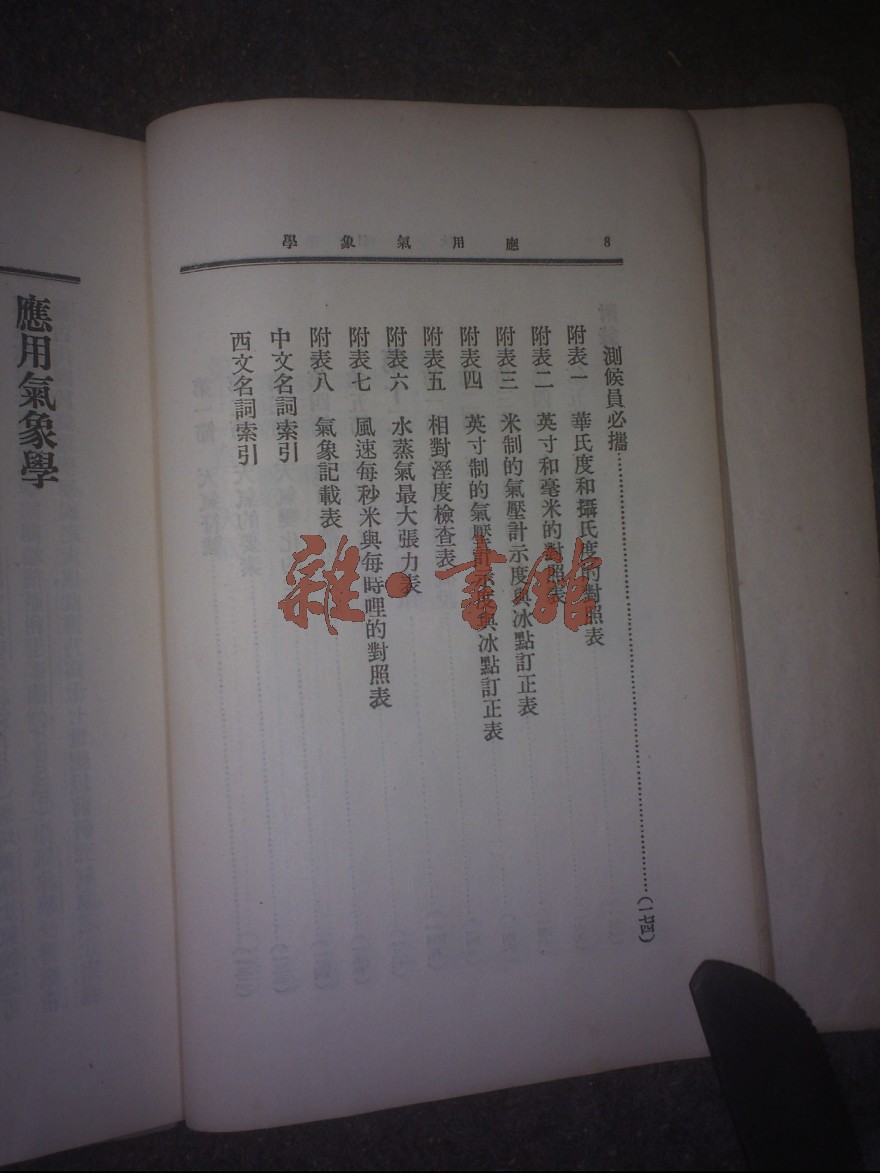 8 應用氣象學
測候員必攜……(一七四)
附表一 華氏度和攝氏度的對照表
附表二 英寸和毫米的對照表
附表三 米制的氣壓計示度與冰點訂正表
附表四 英寸制的氣壓計示度與冰點訂正表
附表五 相對溼度檢查表
附表六 水蒸氣最大張力表
附表七 風速每秒米與每時哩的對照表
附表八 氣象記載表
中文名詞索引
西文名詞索引
應用氣象學
雜·書館